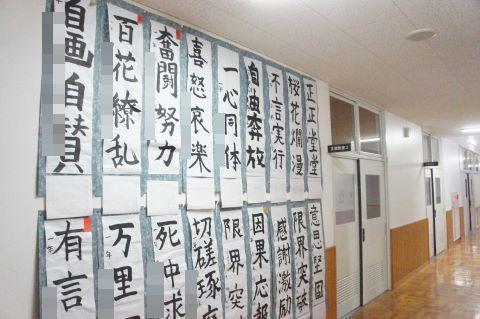 自画自賛
百花繚乱
奮闘努力
喜怒哀楽
一心同体
自由奔放
不言実行
桜花爛漫
正正堂堂
有言
万里
死中求
切磋琢磨
限界突
因果応報
感謝激励
限界突破
意思堅固